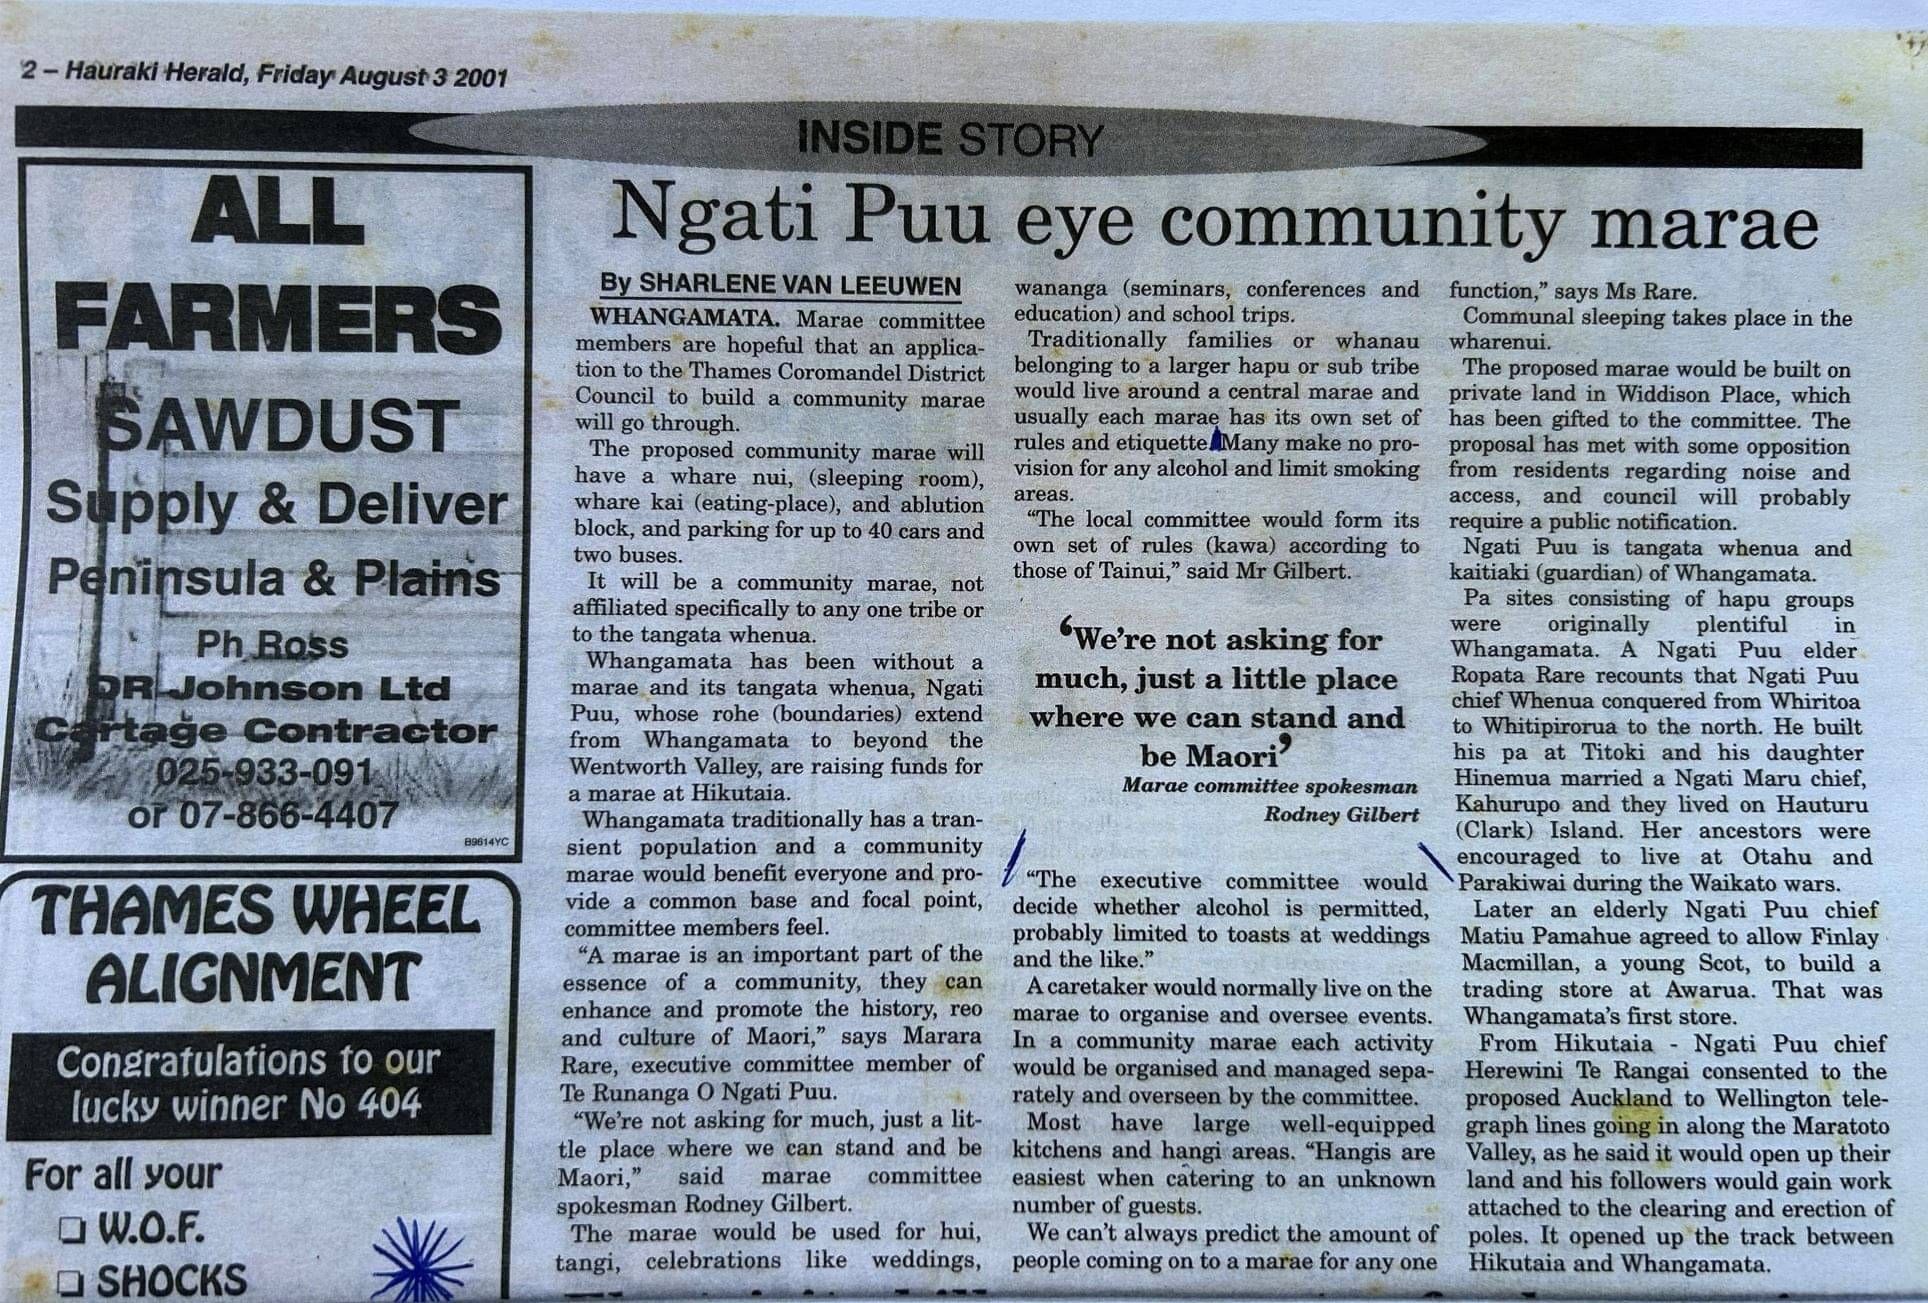 2 – Hauraki Herald, Friday August 3 2001
INSIDE STORY
ALL
FARMERS
SAWDUST
Supply & Deliver
Peninsula & Plains
Ph Ross
DR Johnson Ltd
Cartage Contractor
025-933-091
or 07-866-4407
B9614YC
THAMES WHEEL
ALIGNMENT
Congratulations to our
lucky winner No 404
For all your
W.O.F.
SHOCKS
Ngati Puu eye community marae
By SHARLENE VAN LEEUWEN
WHANGAMATA. Marae committee
members are hopeful that an applica-
tion to the Thames Coromandel District
Council to build a community marae
will go through.
The proposed community marae will
have a whare nui, (sleeping room),
whare kai (eating-place), and ablution
block, and parking for up to 40 cars and
two buses.
It will be a community marae, not
affiliated specifically to any one tribe or
to the tangata whenua.
Whangamata has been without a
marae and its tangata whenua, Ngati
Puu, whose rohe (boundaries) extend
from Whangamata to beyond the
Wentworth Valley, are raising funds for
a marae at Hikutaia.
Whangamata traditionally has a tran-
sient population and a community
marae would benefit everyone and pro-
vide a common base and focal point,
committee members feel.
“A marae is an important part of the
essence of a community, they can
enhance and promote the history, reo
and culture of Maori,” says Marara
Rare, executive committee member of
Te Runanga O Ngati Puu.
“We’re not asking for much, just a lit-
tle place where we can stand and be
Maori,” said marae committee
spokesman Rodney Gilbert.
The marae would be used for hui,
tangi, celebrations like weddings,
wananga (seminars, conferences and
education) and school trips.
Traditionally families or whanau
belonging to a larger hapu or sub tribe
would live around a central marae and
usually each marae has its own set of
rules and etiquette. Many make no pro-
vision for any alcohol and limit smoking
areas.
“The local committee would form its
own set of rules (kawa) according to
those of Tainui,” said Mr Gilbert.
‘We’re not asking for
much, just a little place
where we can stand and
be Maori’
Marae committee spokesman
Rodney Gilbert
“The executive committee would
decide whether alcohol is permitted,
probably limited to toasts at weddings
and the like.”
A caretaker would normally live on the
marae to organise and oversee events.
In a community marae each activity
would be organised and managed sepa-
rately and overseen by the committee.
Most have large well-equipped
kitchens and hangi areas. “Hangis are
easiest when catering to an unknown
number of guests.
We can’t always predict the amount of
people coming on to a marae for any one
function,” says Ms Rare.
Communal sleeping takes place in the
wharenui.
The proposed marae would be built on
private land in Widdison Place, which
has been gifted to the committee. The
proposal has met with some opposition
from residents regarding noise and
access, and council will probably
require a public notification.
Ngati Puu is tangata whenua and
kaitiaki (guardian) of Whangamata.
Pa sites consisting of hapu groups
were originally plentiful in
Whangamata. A Ngati Puu elder
Ropata Rare recounts that Ngati Puu
chief Whenua conquered from Whiritoa
to Whitipirorua to the north. He built
his pa at Titoki and his daughter
Hinemua married a Ngati Maru chief,
Kahurupo and they lived on Hauturu
(Clark) Island. Her ancestors were
encouraged to live at Otahu and
Parakiwai during the Waikato wars.
Later an elderly Ngati Puu chief
Matiu Pamahue agreed to allow Finlay
Macmillan, a young Scot, to build a
trading store at Awarua. That was
Whangamata’s first store.
From Hikutaia - Ngati Puu chief
Herewini Te Rangai consented to the
proposed Auckland to Wellington tele-
graph lines going in along the Maratoto
Valley, as he said it would open up their
land and his followers would gain work
attached to the clearing and erection of
poles. It opened up the track between
Hikutaia and Whangamata.